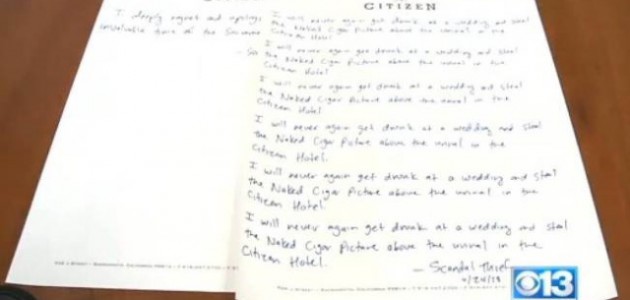 CITIZEN
I deeply regret and apologize
invaluable time of the
I will never again get drunk at a wedding and steal
the Naked Cigar Picture above the urinal in the
Citizen Hotel
I will never again get drunk at a wedding and steal
the Naked Cigar Picture above the urinal in the
Citizen Hotel.
I will never again get drunk at a wedding and steal
the Naked Cigar Picture above the urinal in the
Citizen Hotel
I will never again get drunk at a wedding and steal
the Naked Cigar Picture above the urinal in the
Citizen Hotel.
I will never again get drunk at a wedding and steal
the Naked Cigar Picture above the urinal in the
Citizen Hotel
I will never again get drunk at a wedding and steal
the Naked Cigar Picture above the urinal in the
Citizen Hotel.
— Scandal Thief
CBS 13